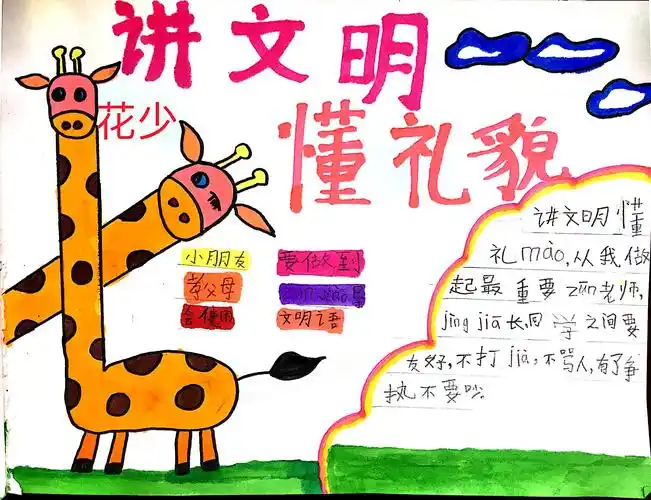 讲文明
花少
懂礼貌
小朋友 要做到
孝父母
会使用 文明之语
讲文明懂
礼mào,从我做
起最重要zūn老师,
jìng jiā长,同学之间要
友好,不打jià,不骂人,有了争
执不要吵